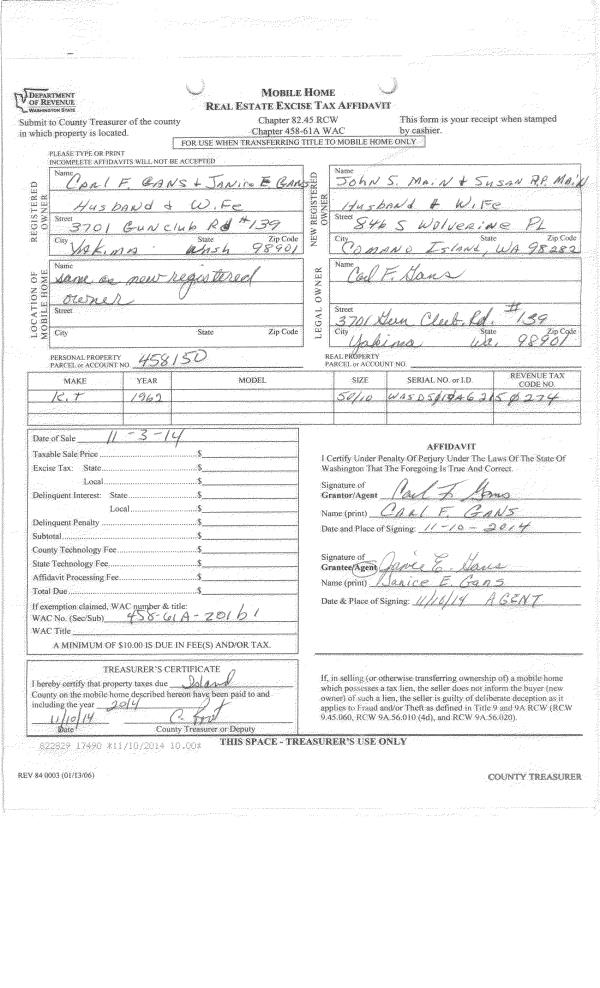 DEPARTMENT
OF REVENUE
WASHINGTON STATE
MOBILE HOME
REAL ESTATE EXCISE TAX AFFIDAVIT
Submit to County Treasurer of the county
in which property is located.
Chapter 82.45 RCW
Chapter 458-61A WAC
This form is your receipt when stamped
by cashier.
FOR USE WHEN TRANSFERRING TITLE TO MOBILE HOME ONLY
PLEASE TYPE OR PRINT
INCOMPLETE AFFIDAVITS WILL NOT BE ACCEPTED
REGISTERED OWNER
Name Carl F. Gans & Janice E Gans
Husband & Wife
Street 3701 Gun Club Rd #139
City Yakima State Wash Zip Code 98901
NEW REGISTERED OWNER
Name John S. Main & Susan R.P. Main
Husband & Wife
Street 846 S Wolverine PL
City Camano Island, State WA Zip Code 98282
LOCATION OF MOBILE HOME
Name same as new registered
owner
Street
City State Zip Code
LEGAL OWNER
Name Carl F. Gans
Street 3701 Gun Club Rd. #139
City Yakima State Wa. Zip Code 98901
PERSONAL PROPERTY
PARCEL or ACCOUNT NO. 458150
REAL PROPERTY
PARCEL or ACCOUNT NO.
MAKE YEAR MODEL SIZE SERIAL NO. or I.D. REVENUE TAX CODE NO.
K.T 1962 50/10
Date of Sale 11-3-14
Taxable Sale Price $
Excise Tax: State $
Local $
Delinquent Interest: State $
Local $
Delinquent Penalty $
Subtotal $
County Technology Fee $
State Technology Fee $
Affidavit Processing Fee $
Total Due $
If exemption claimed, WAC number & title:
WAC No. (Sec/Sub) 458-61A-201b1
WAC Title
A MINIMUM OF $10.00 IS DUE IN FEE(S) AND/OR TAX.
AFFIDAVIT
I Certify Under Penalty Of Perjury Under The Laws Of The State Of
Washington That The Foregoing Is True And Correct.
Signature of
Grantor/Agent Carl F Gans
Name (print) CARL F. GANS
Date and Place of Signing: 11-10-2014
Signature of
Grantee/Agent Janice E. Gans
Name (print) Janice E. Gans
Date & Place of Signing: 11/10/14 AGENT
TREASURER'S CERTIFICATE
I hereby certify that property taxes due Island
County on the mobile home described hereon have been paid to and
including the year 2014
11/10/14
Date County Treasurer or Deputy
If, in selling (or otherwise transferring ownership of) a mobile home
which possesses a tax lien, the seller does not inform the buyer (new
owner) of such a lien, the seller is guilty of deliberate deception as it
applies to Fraud and/or Theft as defined in Title 9 and 9A RCW (RCW
9.45.060, RCW 9A.56.010 (4d), and RCW 9A.56.020).
822829 17490 *11/10/2014 10.00*
THIS SPACE - TREASURER'S USE ONLY
REV 84 0003 (01/13/06)
COUNTY TREASURER